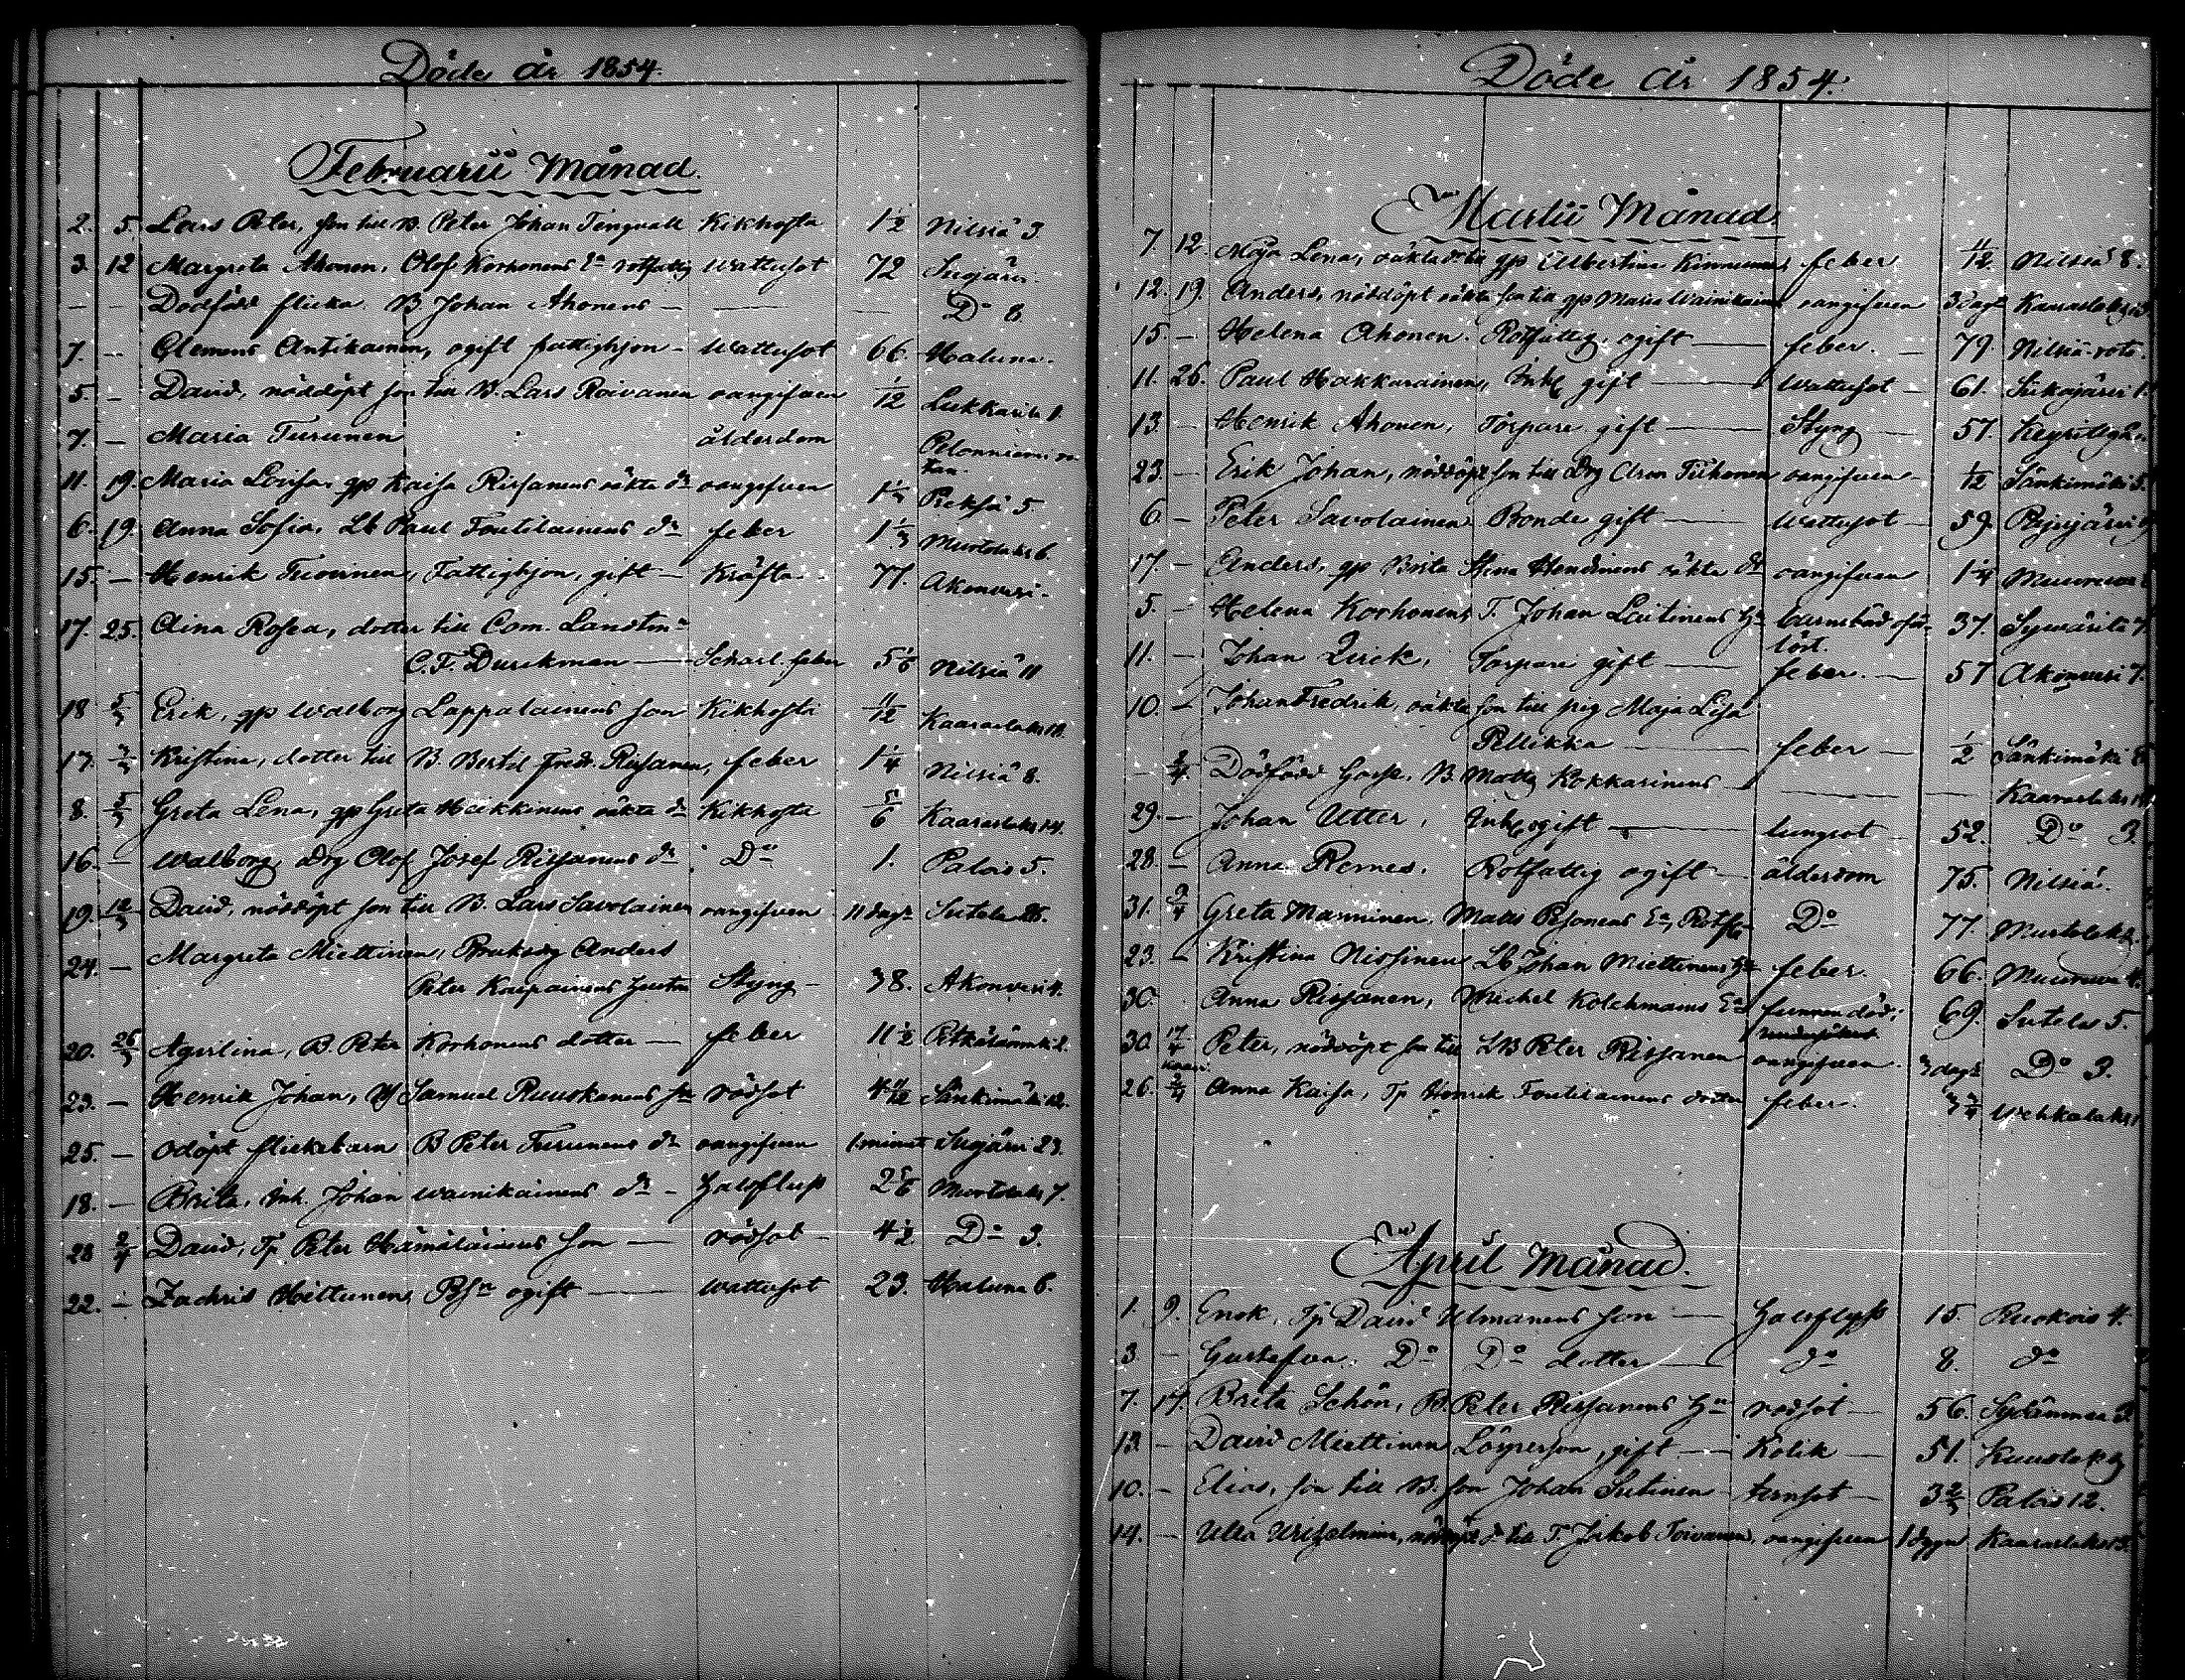 Döde år 1854.
Februarii Månad.
2. 5. Lars Peter, son till B. Peter Johan Tengvall Kikhosta 1 1/2 Nilsiä 3.
3. 12 Margreta Ahonen, Olof Korhonens Ea rotfattig Wattusot 72 Sujärvi.
— Dödfödd flicka B Johan Ahonens — — — Do 8
7. — Clemens Antikainen, ogift fattighjon — Wattusot 66. Haluna.
5. — David, nöddöpt son till B. Lars Roivanen oangifven 1/12 Lukkarila 1.
7. — Maria Turunen ålderdom Pelonniemi
11. 19. Maria Lovisa, gp Kaisa Rissanens oäkta dr oangifven Pieksä 5
6. 19. Anna Sofia, Lb Paul Toutilainens dr feber Murtolaks 6.
15. — Henrik Tuovinen, Fattighjon, gift — Kräfta 77. Akonvesi.
17. 25. Aina Rosea, dotter till Com. Landtm
C. F. Durckman — Scharl. feber 5 1/6 Nilsiä 11
18 5/3 Erik, gp Walborg Lappalainens son Kikhosta 11/12 Kaaraslaks 18.
17. Kristina, dotter till B. Bertil Fred. Rissanen, feber 1 1/4 Nilsiä 8.
8. 5/3 Greta Lena, gp Greta Heikkinens oäkta dr Kikhosta 5/6 Kaaraslaks 14.
16. — Walborg, Drg Olof Josef Rissanens dr Do 1. Palois 5.
19. 12/3 David, nöddöpt son till B. Lars Savolainen oangifven 11 dagr Sutela 25.
24. — Margreta Miettinen, Anders
Peter Kaipainens hustru Styng — 38. Akonvesi 4.
20. 26/3 Agurlina, B. Peter Korhonens dotter — feber 11 1/2 2.
23. — Henrik Johan, Samuel Ruuskanens son rödsot 4 11/12 Sänkimäki 12.
25. — odöpt flickebarn B Peter Turunens dr oangifven 1 minut Sujärvi 23.
18. — Brita, Inh. Johan Wainikainens dr — halsfluss 2 5/6 Murtolaks 7.
28 2/4 David, Tp Peter Hämäläinens son — rödsot — 4 1/2 Do 3.
22. — Zachris Hiltunen, ogift — Wattusot 23. Haluna 6.
Döde år 1854.
Martii Månad.
7. 12. Maja Lena, oäkta dr till gp Albertina Kinnunen, feber 11/12. Nilsiä 8.
12. 19. Anders, nöddöpt oäkta son till gp Maria Wainikain oangifven 3 dagr Kaaraslaks
15. — Helena Ahonen. Rotfattig, ogift — feber. — 79. Nilsiä rote.
11. 26. Paul Hakkarainen, Inh gift — Wattusot — 61. Siikajärvi 1.
13. — Henrik Ahonen, Torpare gift — Styng — 57.
23. — Erik Johan, nöddöpt son till Drg Aron Tiihonen oangifven — 1/12 Sänkimäki 5.
6. — Peter Savolainen Bonde gift — Wattusot — 59.
17. — Anders, gp Brita Stina oäkta oangifven 1 1/4 Muuruvesi
5. — Helena Korhonen, T. Johan Laitinens ha barnsbäd oför-
löst. 37. Sywärilä 7.
11. — Johan Zirck, Torpare gift — feber. — 57 Akonvesi 7.
10. — Johan Fredrik, oäkta son till pig Maja Lisa
Pellikka — feber — 1/2 Sänkimäki
— 2/4. Dödfödd Gosse, B. Matts Kokkarinens — — — Kaaraslaks
29. — Johan Utter, Inh ogift — lungsot — 52. Do 3.
28. — Anna Remes, Rotfattig ogift — ålderdom 75. Nilsiä.
31. 9/4 Greta Manninen, Mats Pesonens Ea, Rotf Do 77. Murtolaks.
23. — Kristina Nissinen Lb Johan Miettinens ha feber 66. Muuruvesi 4.
30. Anna Rissanen, Michel Kolehmains Ea funnen död; 69. Sutela 5.
30. 17/4 Peter, nöddöpt son till LB Peter Rissanen oangifven. 3 dagr Do 3.
26. 2/4 Anna Kaisa, Tp Henrik Toutilainens dotter feber. 3/4 Wehkalaks 1
April Månad.
1. 9. Enok, Tp David Ulmanens son — halsflyss 15. Ruokois 4.
3. — Gustafva. Do Do dotter — do 8. do
7. 17. Brita Schön, B. Peter Rissanens ha rödsot — 56. Sydänmaa 3.
13. — David Miettinen Lösperson, gift — Kolik — 51. Kuuslaks
10. — Elias, son till B. son Johan Sutinen — 3 2/3 Palois 12.
14. — Ulla Wilhelmina, nöddöpt dr till T. Jakob Toivanen, oangifven 1 dygn Kaaraslaks 15.